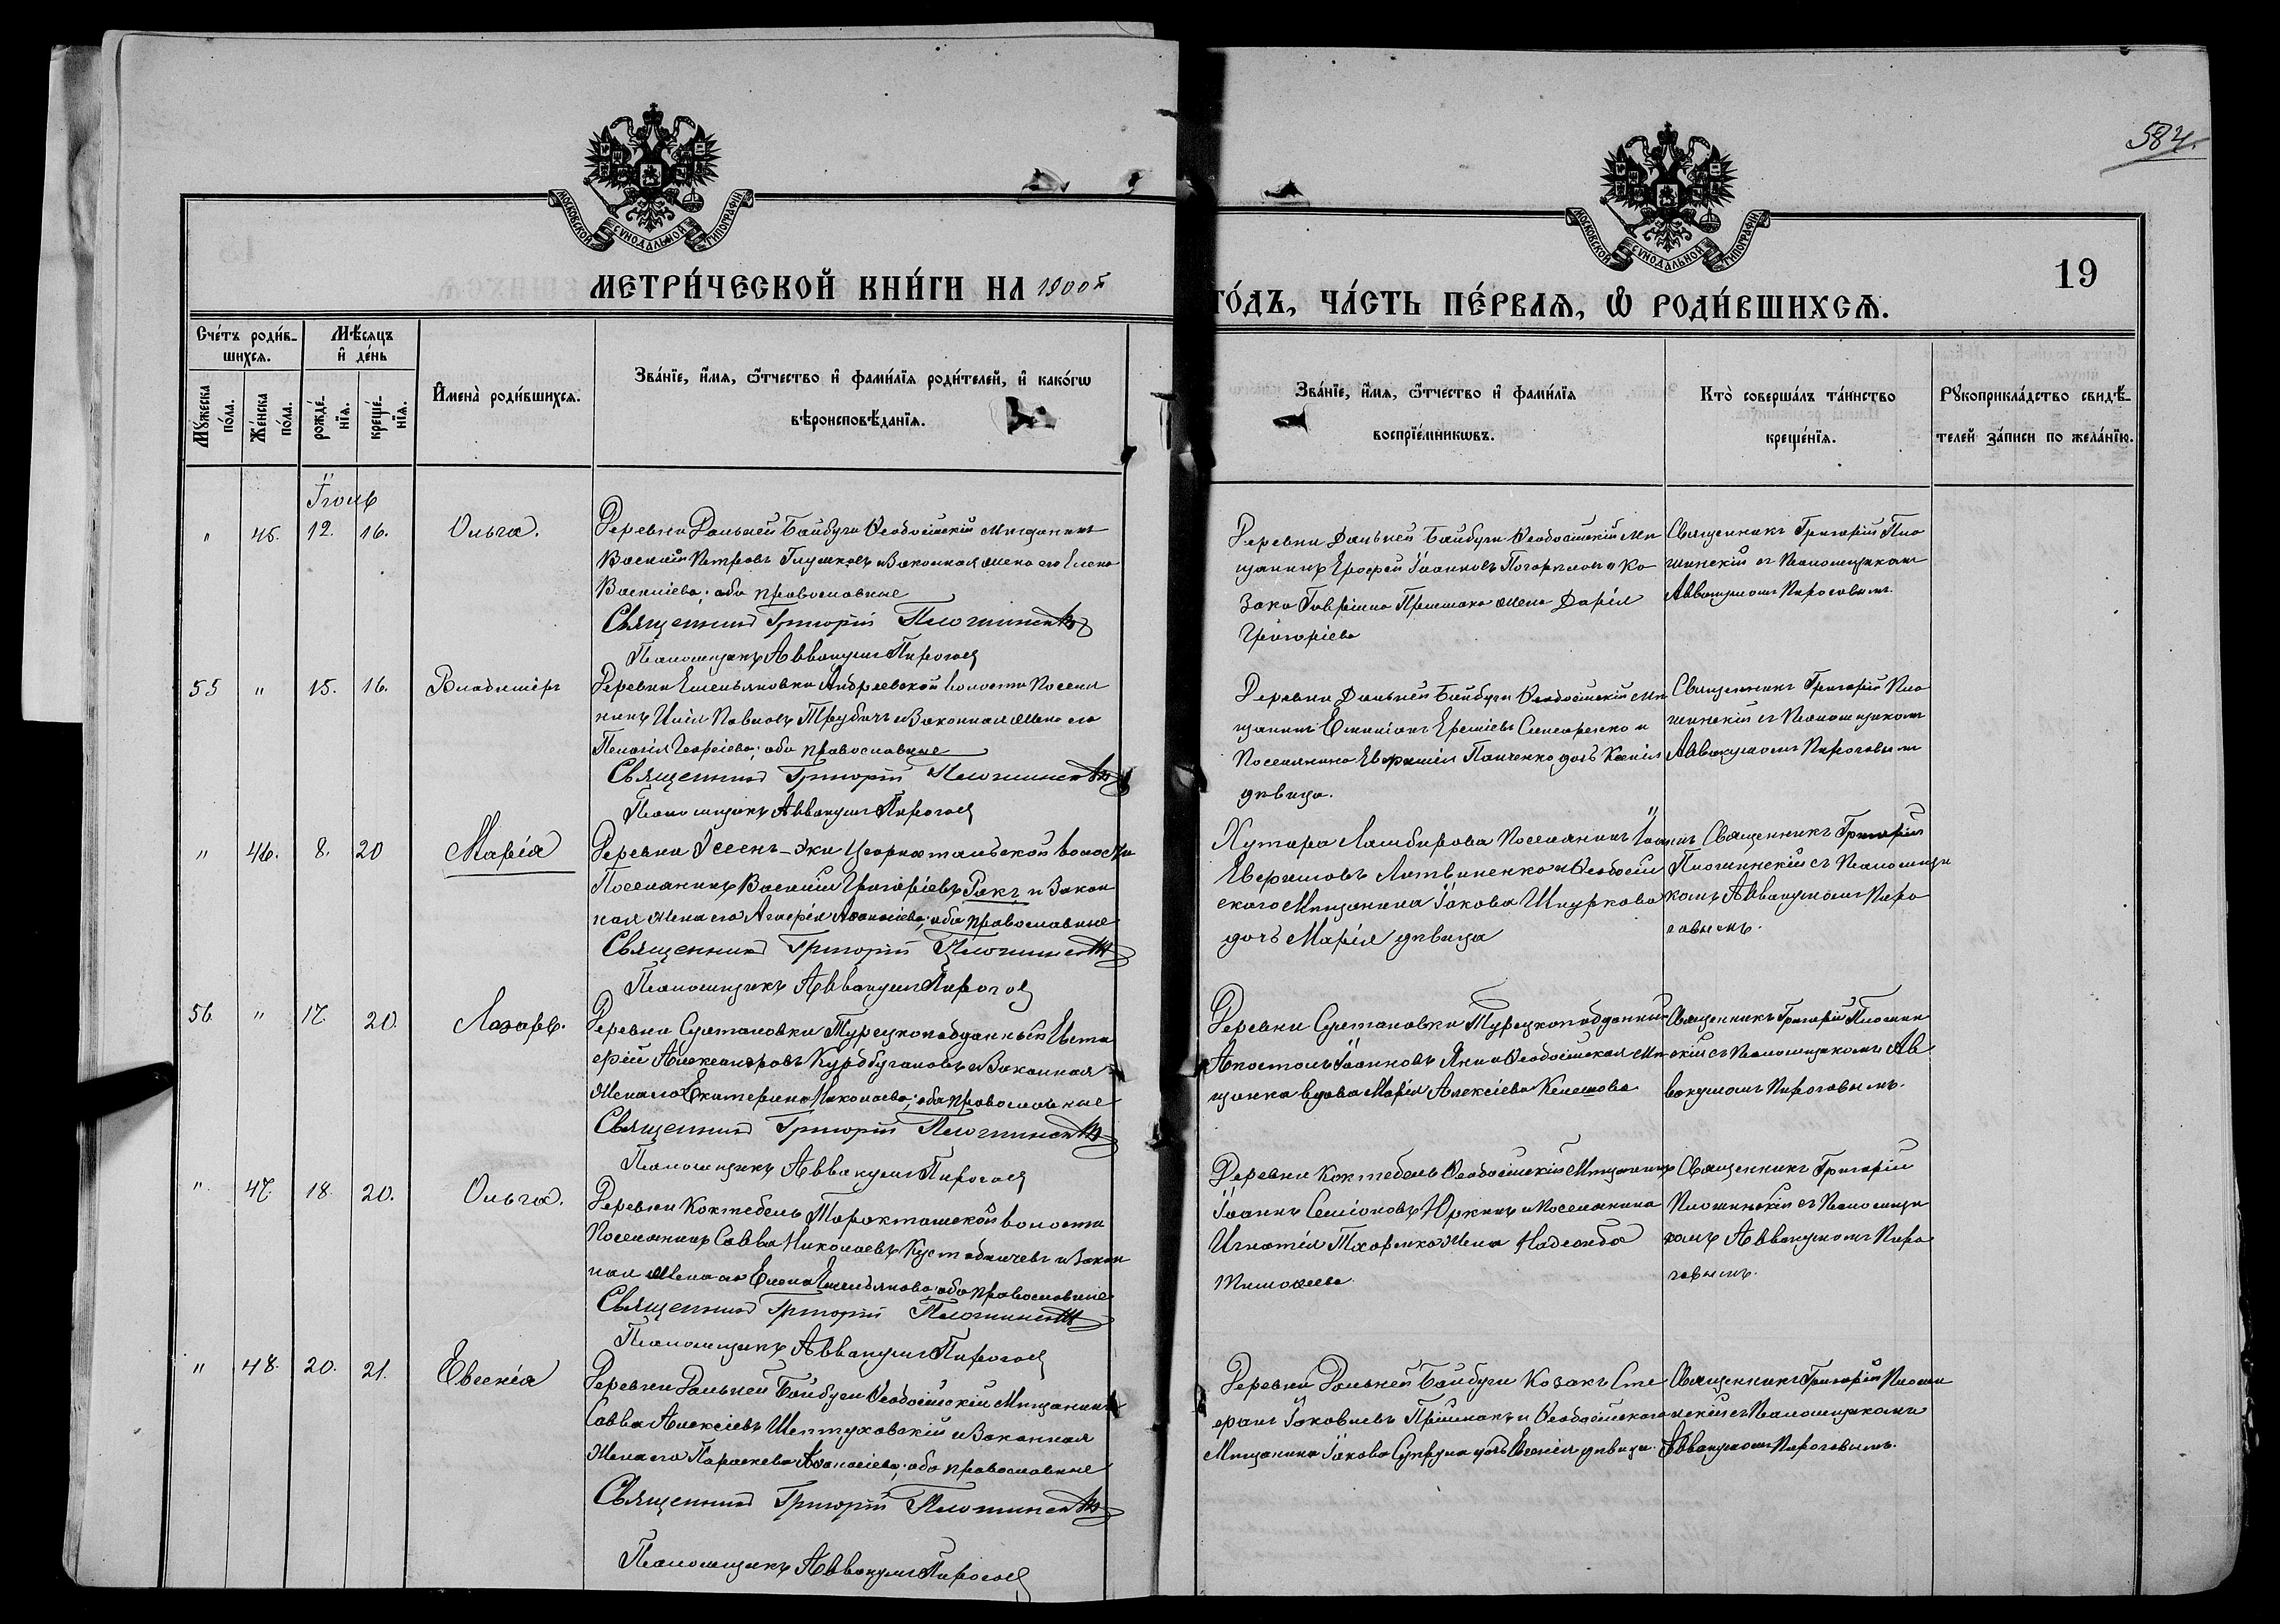 584.
МОСКОВСКОЙ СУНОДАЛЬНОЙ ТИПОГРАФІИ
МОСКОВСКОЙ СУНОДАЛЬНОЙ ТИПОГРАФІИ
19
МЕТРИ́ЧЕСКОЙ КНИ́ГИ НА 1900й
ГО́ДЪ, ЧА́СТЬ ПЕ́РВАЯ, Ѡ РОДИ́ВШИХСЯ.
Сче́тъ роди́в-
шихся.
Мѣ́сяцъ
и҆ де́нь
Мꙋ́жеска
по́ла.
Же́нска
по́ла.
рожде́-
нїя.
креще́-
нїя.
И҆мена̀ роди́вшихся.
Зва́нїе, и҆́мя, ѻ҆́тчество и҆ фами́лїя роди́телей, и҆ како́гѡ
вѣроисповѣ́данїя.
Зва́нїе, и҆́мя, ѻ҆́тчество и҆ фами́лїя
воспрїе́мникѡвъ.
Кто̀ соверша́лъ та́инство
креще́нїя.
Рꙋкоприкла́дство свидѣ́-
телей за́писи по жела́нїю.
Іюнь
" 45. 12. 16. Ольга.
Деревни Дальней Байбуги Ѳеодосійскій мѣщанинъ
Василій Петровъ Глушковъ и Законная жена его Елена
Василіева; оба православные
Священникъ Григорій Плошинскій
Псаломщикъ Аввакумъ Пироговъ
Деревни Дальней Байбуги Ѳеодосійскій мѣ
щанинъ Ерофей Іоанновъ Погорѣловъ и Ко
зака Гавріила Пришака жена Дарія
Григоріева
Священникъ Григорій Пло
шинскій съ Псаломщикомъ
Аввакумомъ Пироговымъ.
55 " 15. 16. Владиміръ
Деревни Емельяновки Андреевской волости Поселя
нинъ Илія Павловъ Трубачъ и Законная жена его
Пелагія Георгіева; оба православные
Священникъ Григорій Плошинскій
Псаломщикъ Аввакумъ Пироговъ
Деревни Дальней Байбуги Ѳеодосійскій мѣ
щанинъ Емиліанъ Ереміевъ и
Поселянина Евфимія Панченко дочь Ксенія
дѣвица.
Священникъ Григорій Пло
шинскій съ Псаломщикомъ
Аввакумомъ Пироговымъ
" 46. 8. 20 Марія
Деревни Эссенъ-Эки Цюрихтальской волости
Поселянинъ Василій Григоріевъ Ракъ и Закон
ная жена его Агафія Аѳанасіева; оба православные
Священникъ Григорій Плошинскій
Псаломщикъ Аввакумъ Пироговъ
Хутора Ламбирова Поселянинъ Іоаннъ
Евфимовъ Литвиненко и Ѳеодосій
скаго Мѣщанина Іакова Шкуркова
дочь Марія дѣвица
Священникъ Григорій
Плошинскій съ Псаломщи
комъ Аввакумомъ Пиро
говымъ.
56. " 17. 20. Лазарь.
Деревни Султановки Турецкоподданный Евста
фій Александровъ Курдбугановъ и Законная
Жена его Екатерина Николаева; оба православные
Священникъ Григорій Плошинскій
Псаломщикъ Аввакумъ Пироговъ
Деревни Султановки Турецкоподданный
Апостолъ Іоанновъ Яни и Ѳеодосійская мѣ
щанка вдова Марія Алексіева Келешова
Священникъ Григорій Плошин
скій съ Псаломщикомъ Ав
вакумомъ Пироговымъ.
" 47. 18. 20. Ольга.
Деревни Коктебель Таракташской волости
Поселянинъ Савва Николаевъ и Закон
ная жена его Елена Емельянова; оба православные
Священникъ Григорій Плошинскій
Псаломщикъ Аввакумъ Пироговъ
Деревни Коктебель Ѳеодосійскій Мѣщанинъ
Іоаннъ Симеоновъ Юркинъ и Поселянина
Игнатія Тхоренко жена Надежда
Тимоѳеева.
Священникъ Григорій
Плошинскій съ Псаломщи
комъ Аввакумомъ Пиро
говымъ.
" 48. 20. 21. Евгенія
Деревни Дальней Байбуги Ѳеодосійскій Мѣщанинъ
Савва Алексіевъ Шептуховскій и Законная
Жена его Параскева Аѳанасіева; оба православные
Священникъ Григорій Плошинскій
Псаломщикъ Аввакумъ Пироговъ
Деревни Дальней Байбуги Козакъ Сте
фанъ Іаковлевъ Пришакъ и Ѳеодосійскаго
Мѣщанина Іакова Супруна дочь Евгенія дѣвица.
Священникъ Григорій Плоши
нскій съ Псаломщикомъ
Аввакумомъ Пироговымъ.